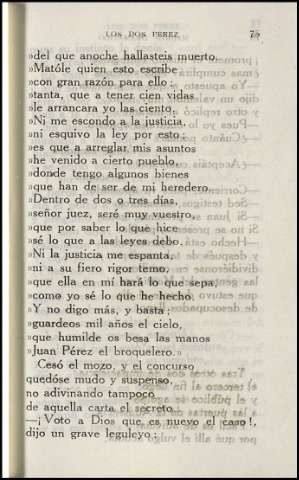 LOS DOS PEREZ
»del que anoche hallasteis muerto.
»Matóle quien esto escribe
»con gran razón para ello;
»tanta, que a tener cien vidas
»le arrancara yo las ciento.
»Ni me escondo a la justicia,
»ni esquivo la ley por esto;
»es que a arreglar mis asuntos
»he venido a cierto pueblo,
»donde tengo algunos bienes
»que han de ser de mi heredero.
»Dentro de dos o tres días,
»señor juez, seré muy vuestro,
»que por saber lo que hice
»sé lo que a las leyes debo.
»Ni la justicia me espanta,
»ni a su fiero rigor temo,
»que ella en mí hará lo que sepa,
»como yo sé lo que he hecho.
»Y no digo más, y basta;
»guardeos mil años el cielo,
»que humilde os besa las manos
»Juan Pérez el broquelero.»
Cesó el mozo, y el concurso
quedóse mudo y suspenso,
no adivinando tampoco
de aquella carta el secreto.
—¡Voto a Dios que es nuevo el caso!,
dijo un grave leguleyo;